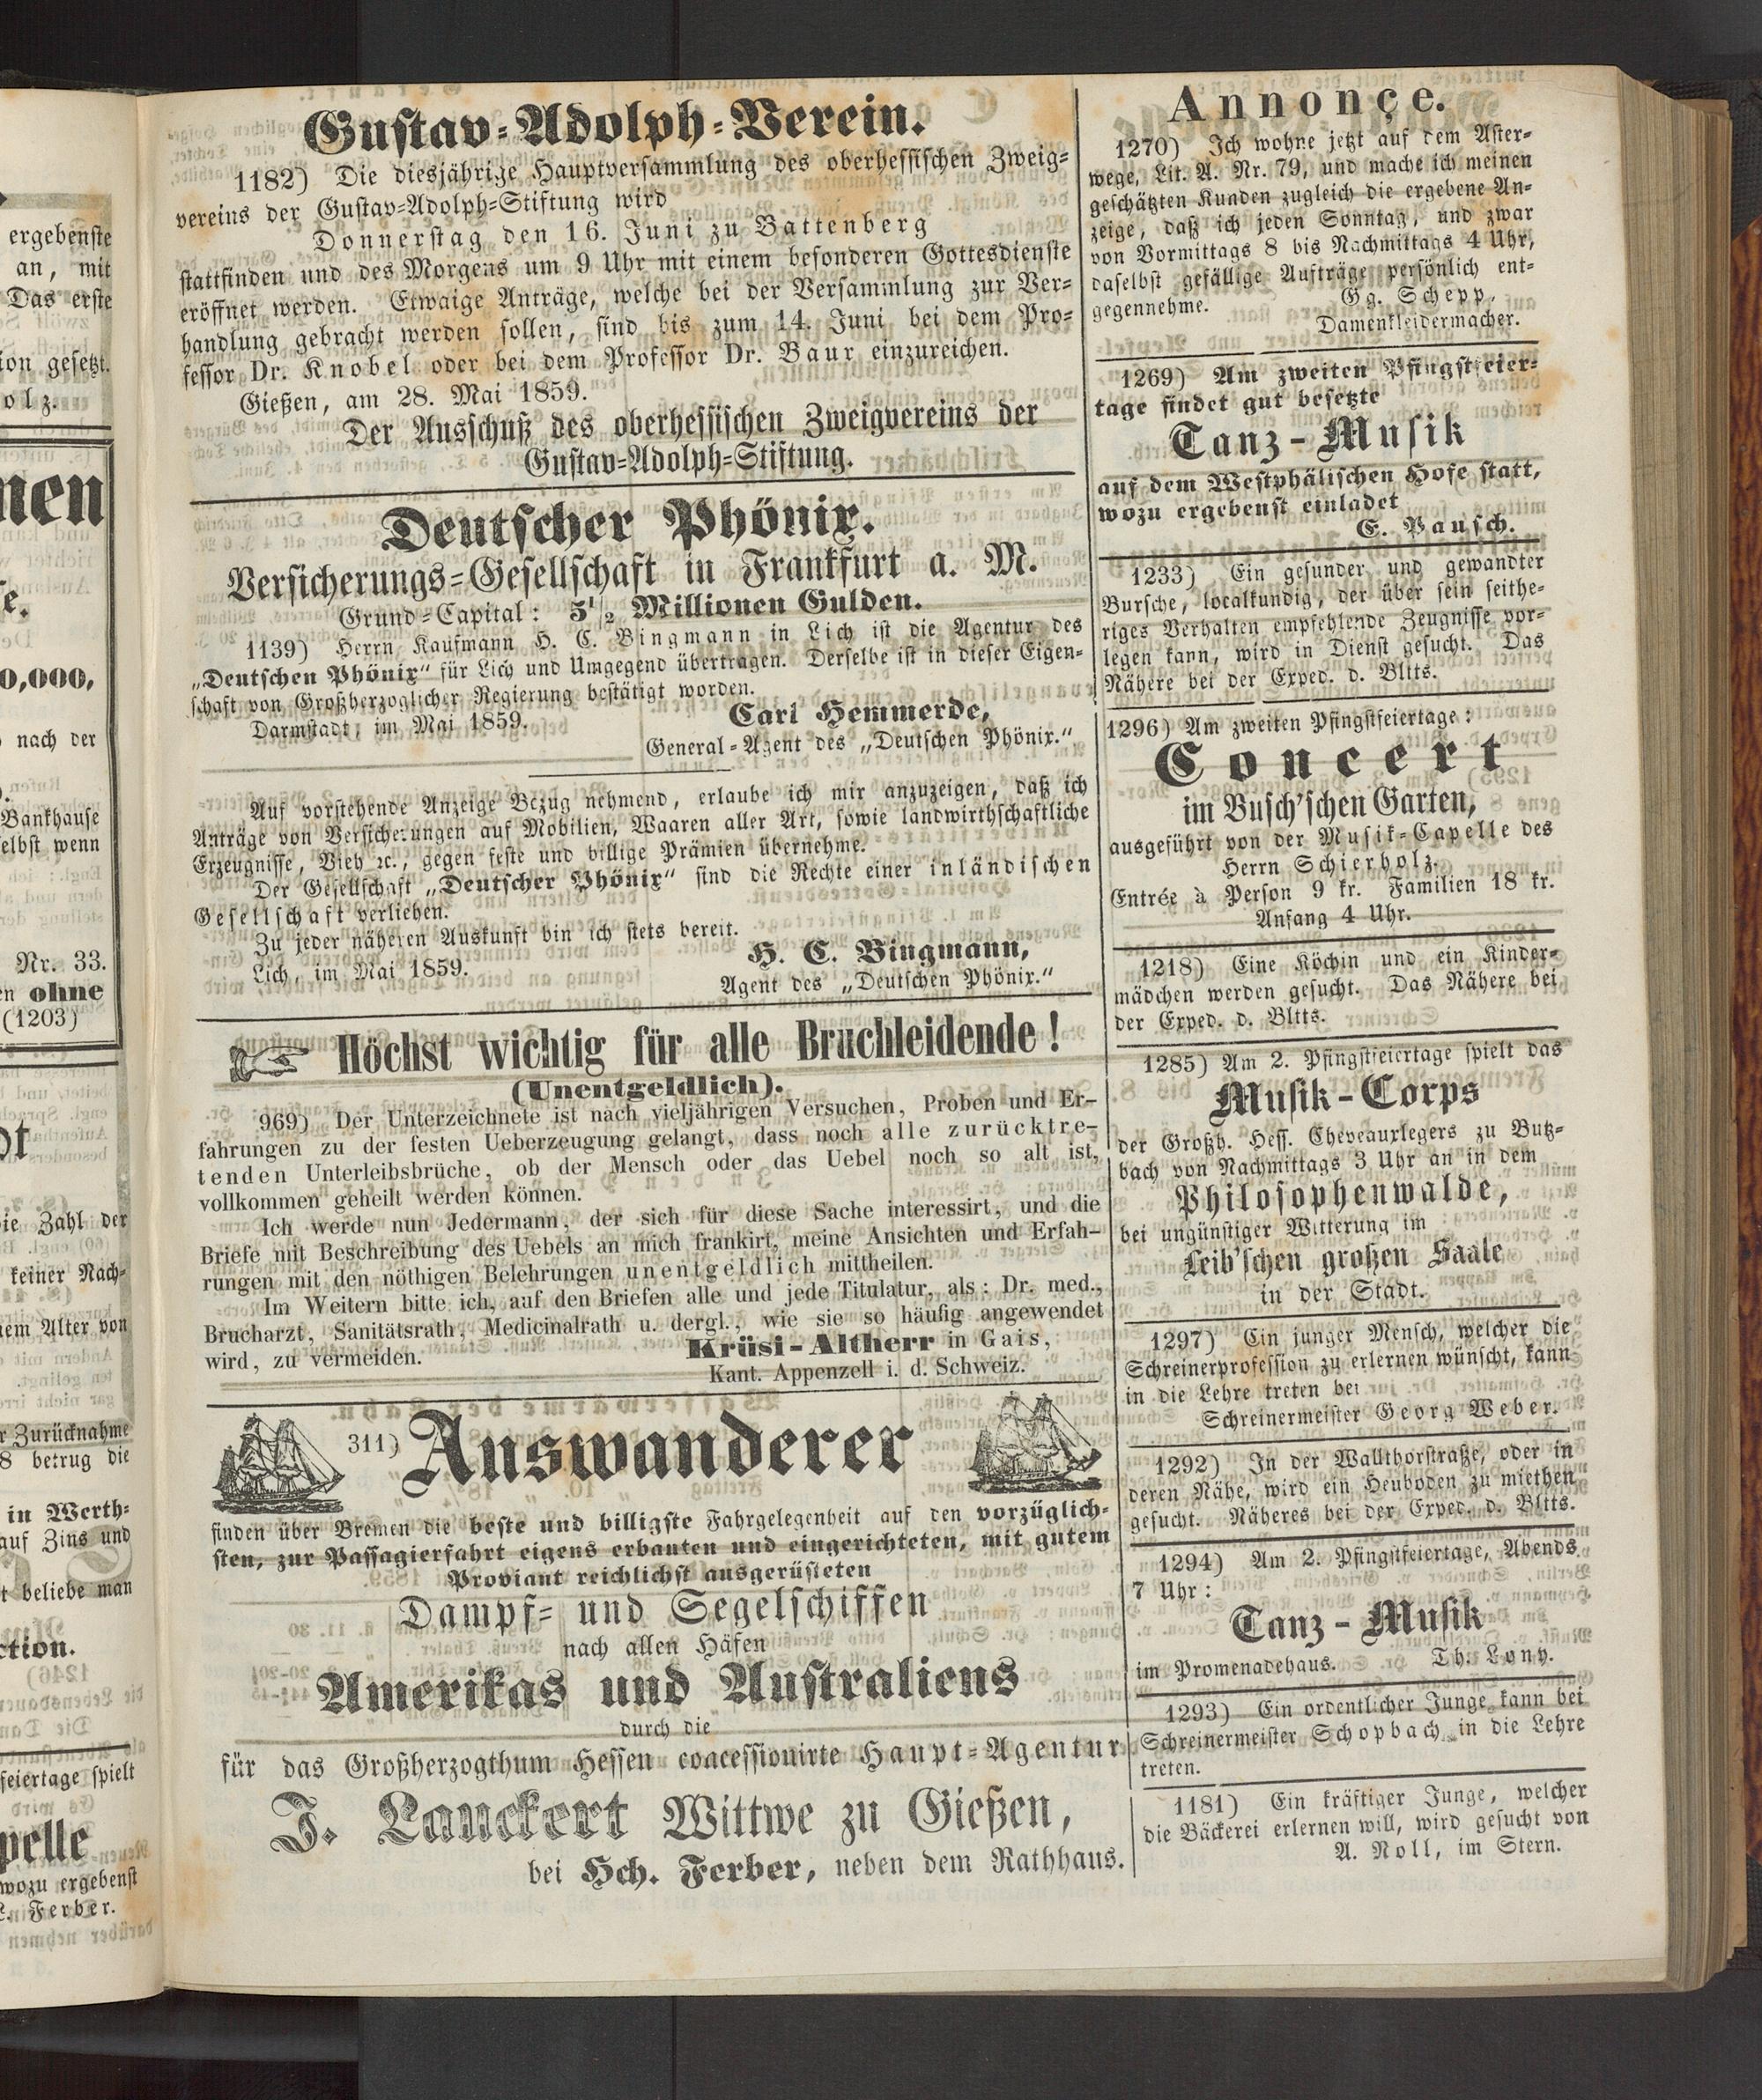 Gustav-Adolph-Verein.
1182) Die diesjährige Hauptversammlung des oberhessischen Zweig-
vereins der Gustav-Adolph-Stiftung wird
Donnerstag den 16. Juni zu Battenberg
stattfinden und des Morgens um 9 Uhr mit einem besonderen Gottesdienste
eröffnet werden. Etwaige Anträge, welche bei der Versammlung zur Ver-
handlung gebracht werden sollen, sind bis zum 14. Juni bei dem Pro-
fessor Dr. Knobel oder bei dem Professor Dr. Baur einzureichen.
Gießen, am 28. Mai 1859.
Der Ausschuß des oberhessischen Zweigvereins der
Gustav-Adolph-Stiftung.
Deutscher Phönix.
Versicherungs-Gesellschaft in Frankfurt a. M.
Grund-Capital: 5 1/2 Millionen Gulden.
1139) Herrn Kaufmann H. C. Bingmann in Lich ist die Agentur des
„Deutschen Phönix“ für Lich und Umgegend übertragen. Derselbe ist in dieser Eigen-
schaft von Großherzoglicher Regierung bestätigt worden.
Darmstadt, im Mai 1859.
Carl Hemmerde,
General-Agent des „Deutschen Phönix.“
Auf vorstehende Anzeige Bezug nehmend, erlaube ich mir anzuzeigen, daß ich
Anträge von Versicherungen auf Mobilien, Waaren aller Art, sowie landwirthschaftliche
Erzeugnisse, Vieh ꝛc., gegen feste und billige Prämien übernehme.
Der Gesellschaft „Deutscher Phönix“ sind die Rechte einer inländischen
Gesellschaft verliehen.
Zu jeder näheren Auskunft bin ich stets bereit.
Lich, im Mai 1859.
H. C. Bingmann,
Agent des „Deutschen Phönix.“
Höchst wichtig für alle Bruchleidende!
(Unentgeldlich).
969) Der Unterzeichnete ist nach vieljährigen Versuchen, Proben und Er-
fahrungen zu der festen Ueberzeugung gelangt, dass noch alle zurücktre-
tenden Unterleibsbrüche, ob der Mensch oder das Uebel noch so alt ist,
vollkommen geheilt werden können.
Ich werde nun Jedermann, der sich für diese Sache interessirt, und die
Briefe mit Beschreibung des Uebels an mich frankirt, meine Ansichten und Erfah-
rungen mit den nöthigen Belehrungen unentgeldlich mittheilen.
Im Weitern bitte ich, auf den Briefen alle und jede Titulatur, als: Dr. med.,
Brucharzt, Sanitätsrath, Medicinalrath u. dergl., wie sie so häufig angewendet
wird, zu vermeiden.
Krüsi-Altherr in Gais,
Kant. Appenzell i. d. Schweiz.
311) Auswanderer
finden über Bremen die beste und billigste Fahrgelegenheit auf den vorzüglich-
sten, zur Passagierfahrt eigens erbauten und eingerichteten, mit gutem
Proviant reichlichst ausgerüsteten
Dampf- und Segelschiffen
nach allen Häfen
Amerikas und Australiens
durch die
für das Großherzogthum Hessen concessionirte Haupt-Agentur
J. Lauckert Wittwe zu Gießen,
bei Hch. Ferber, neben dem Rathhaus.
Annonçe.
1270) Ich wohne jetzt auf dem Aster-
wege, Lit. A. Nr. 79, und mache ich meinen
geschätzten Kunden zugleich die ergebene An-
zeige, daß ich jeden Sonntag, und zwar
von Vormittags 8 bis Nachmittags 4 Uhr,
daselbst gefällige Aufträge persönlich ent-
gegennehme.
Gg. Schepp,
Damenkleidermacher.
1269) Am zweiten Pfingstfeier-
tage findet gut besetzte
Tanz-Musik
auf dem Westphälischen Hofe statt,
wozu ergebenst einladet
E. Pausch.
1233) Ein gesunder und gewandter
Bursche, localkundig, der über sein seithe-
riges Verhalten empfehlende Zeugnisse vor-
legen kann, wird in Dienst gesucht. Das
Nähere bei der Exped. d. Bltts.
1296) Am zweiten Pfingstfeiertage:
Concert
im Busch'schen Garten,
ausgeführt von der Musik-Capelle des
Herrn Schierholz.
Entrée à Person 9 kr. Familien 18 kr.
Anfang 4 Uhr.
1218) Eine Köchin und ein Kinder-
mädchen werden gesucht. Das Nähere bei
der Exped. d. Bltts.
1285) Am 2. Pfingstfeiertage spielt das
Musik-Corps
der Großh. Hess. Cheveauxlegers zu Butz-
bach von Nachmittags 3 Uhr an in dem
Philosophenwalde,
bei ungünstiger Witterung im
Leib'schen großen Saale
in der Stadt.
1297) Ein junger Mensch, welcher die
Schreinerprofession zu erlernen wünscht, kann
in die Lehre treten bei
Schreinermeister Georg Weber.
1292) In der Wallthorstraße, oder in
deren Nähe, wird ein Heuboden zu miethen
gesucht. Näheres bei der Exped. d. Bltts.
1294) Am 2. Pfingstfeiertage, Abends
7 Uhr:
Tanz-Musik
im Promenadehaus. Th. Lony.
1293) Ein ordentlicher Junge kann bei
Schreinermeister Schopbach in die Lehre
treten.
1181) Ein kräftiger Junge, welcher
die Bäckerei erlernen will, wird gesucht von
A. Noll, im Stern.
ergebenste
an, mit
Das erste
gesetzt.
olz.
0,000,
nach der
Bankhause
selbst wenn
Nr. 33.
ohne
(1203)
Zahl der
keiner Nach-
Alter von
Zurücknahme
betrug die
in Werth-
auf Zins und
beliebe man
wozu ergebenst
Ferber.